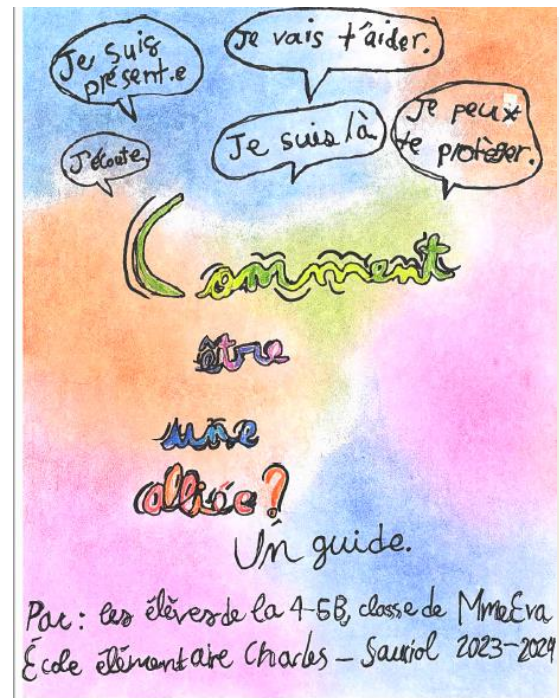 Je suis
présent.e
Je vais t'aider.
J'écoute.
Je suis là.
Je peux
te protéger.
Comment
être
une
alliée?
Un guide.
Par: les élèves de la 4-5B, classe de Mme Eva
École élémentaire Charles - Sauriol 2023-2024